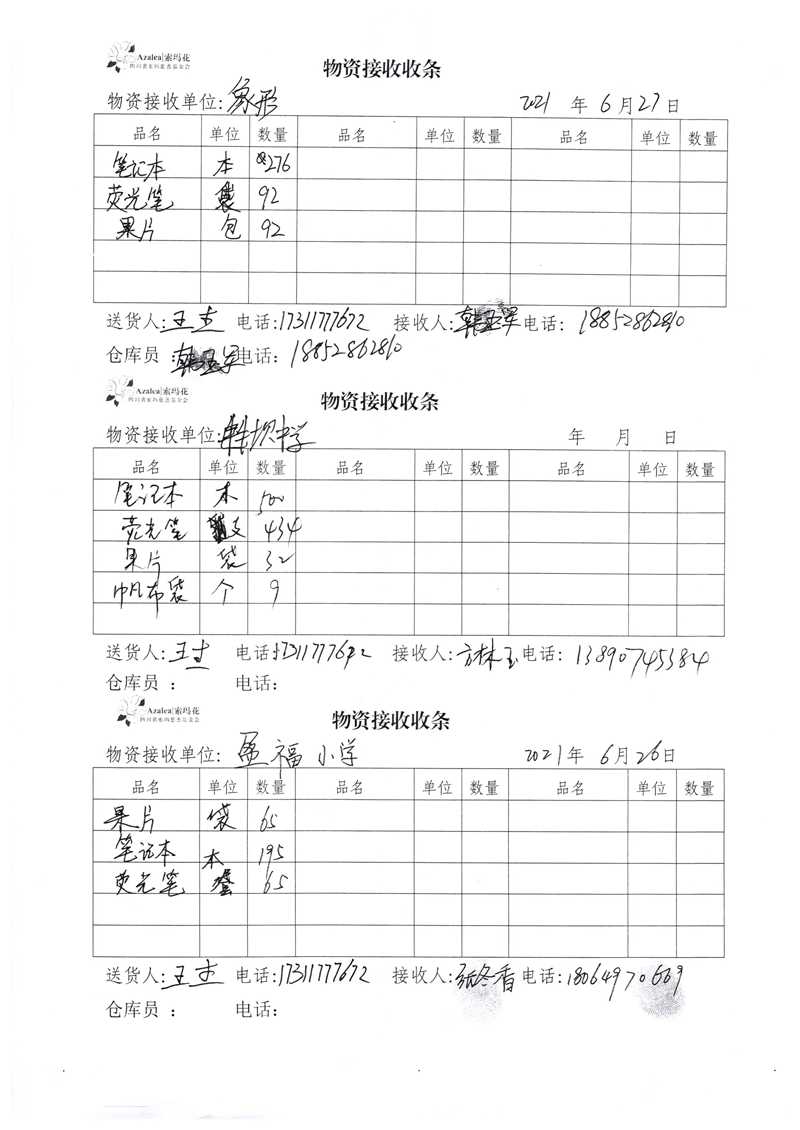 Azalea|索玛花
四川省索玛慈善基金会
物资接收收条
物资接收单位:象形 2021 年 6 月 27 日
品名 单位 数量 品名 单位 数量 品名 单位 数量
笔记本 本 276
荧光笔 袋 92
果片 包 92
送货人:王杰 电话:17311777672 接收人:韩军 电话:18852862810
仓库员 :韩军 电话:18852862810
Azalea|索玛花
四川省索玛慈善基金会
物资接收收条
物资接收单位:坝中学 年 月 日
品名 单位 数量 品名 单位 数量 品名 单位 数量
笔记本 本 500
荧光笔 支 434
果片 袋 32
帆布袋 个 9
送货人:王杰 电话:17311777672 接收人:方林玉 电话:13890745384
仓库员 : 电话:
Azalea|索玛花
四川省索玛慈善基金会
物资接收收条
物资接收单位:盈福小学 2021 年 6 月 26 日
品名 单位 数量 品名 单位 数量 品名 单位 数量
果片 袋 65
笔记本 本 195
荧光笔 套 65
送货人:王杰 电话:17311777672 接收人:张冬香 电话:18064970669
仓库员 : 电话: